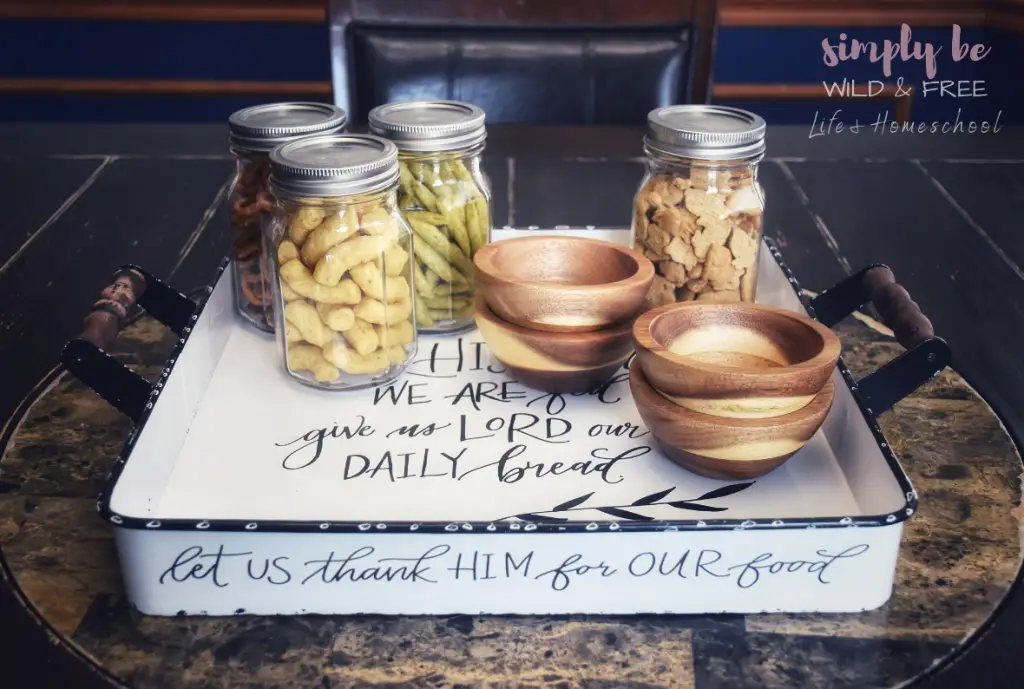 simply be
WILD & FREE
Life & Homeschool
HIS
WE ARE fed
give us LORD our
DAILY bread
let US thank HIM for OUR food